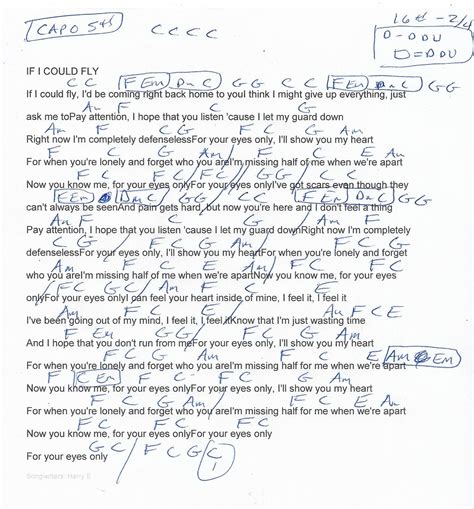 CAPO 5th C C C C 16th - 2/4
D - DDU
D = DDU
IF I COULD FLY
C C F Em Dm C G G C C F Em Dm C G G
If I could fly, I'd be coming right back home to youI think I might give up everything, just
Am F C
ask me toPay attention, I hope that you listen 'cause I let my guard down
Am F C G F C G Am
Right now I'm completely defenselessFor your eyes only, I'll show you my heart
F C E Am
For when you're lonely and forget who you areI'm missing half of me when we're apart
F C F C G G
Now you know me, for your eyes onlyFor your eyes onlyI've got scars even though they
F Em Dm C G G C C F Em Dm C G G
can't always be seenAnd pain gets hard, but now you're here and I don't feel a thing
Am F C Am F
Pay attention, I hope that you listen 'cause I let my guard downRight now I'm completely
C G F C G Am F C G
defenselessFor your eyes only, I'll show you my heartFor when you're lonely and forget
Am F C E Am F C
who you areI'm missing half of me when we're apartNow you know me, for your eyes
F C G G Am
onlyFor your eyes onlyI can feel your heart inside of mine, I feel it, I feel it
F C E
I've been going out of my mind, I feel it, I feel itKnow that I'm just wasting time
F C G Am
And I hope that you don't run from meFor your eyes only, I'll show you my heart
F C G Am F C E Am Em
For when you're lonely and forget who you areI'm missing half of me when we're apart
F C Em F C G Am
Now you know me, for your eyes onlyFor your eyes only, I'll show you my heart
F C G Am F C E Am
For when you're lonely and forget who you areI'm missing half of me when we're apart
F C F C
Now you know me, for your eyes onlyFor your eyes only
G C F C G C
For your eyes only
Songwriters: Harry